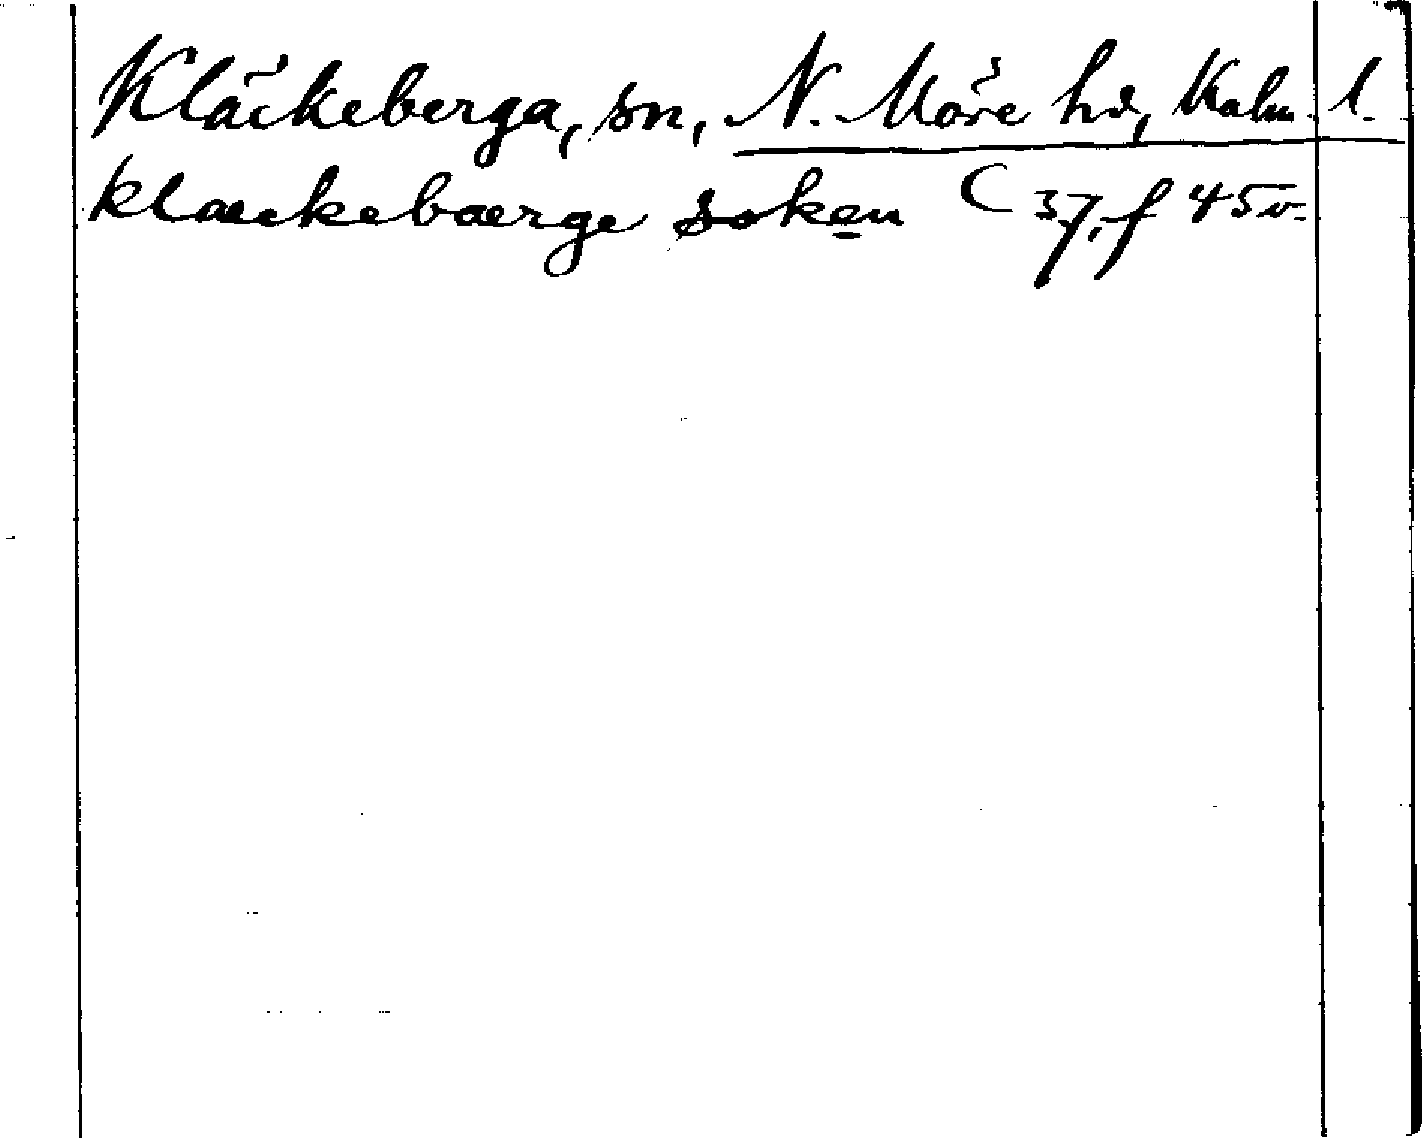 Kläckeberga, sn, N. Möre hd, Kalm. l.
klaeckebaerge soken C 37, f 45 v.